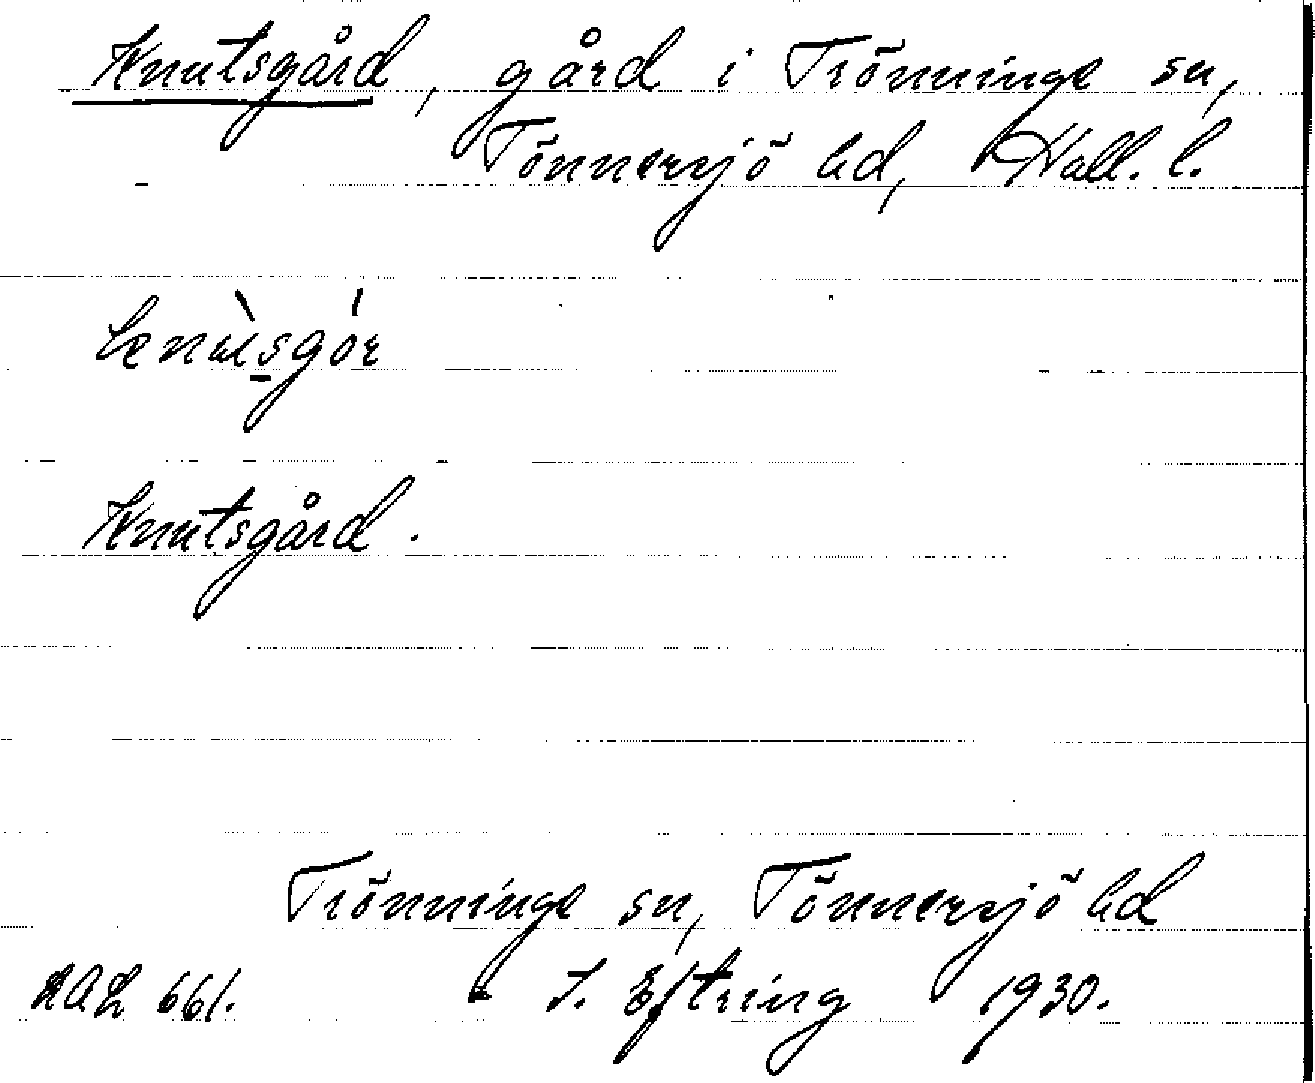 Knutsgård, gård i Trönninge sn,
Tönnersjö hd, Hall. l.
knu̠ùsgór
Knutsgård.
Trönninge sn, Tönnersjö hd
LAL 661. J. Eftring 1930.